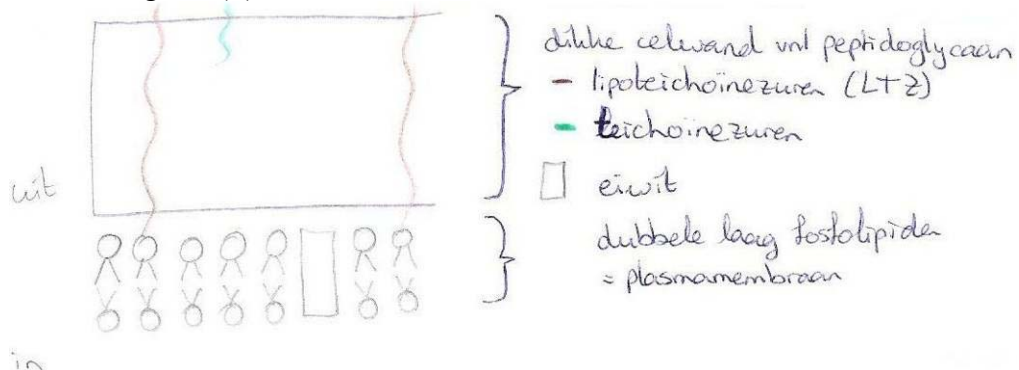 dikke celwand vnl peptidoglycaan
- lipoteichoïnezuren (LTZ)
- teichoïnezuren
eiwit
uit
dubbele laag fosfolipiden
= plasmamembraan
in